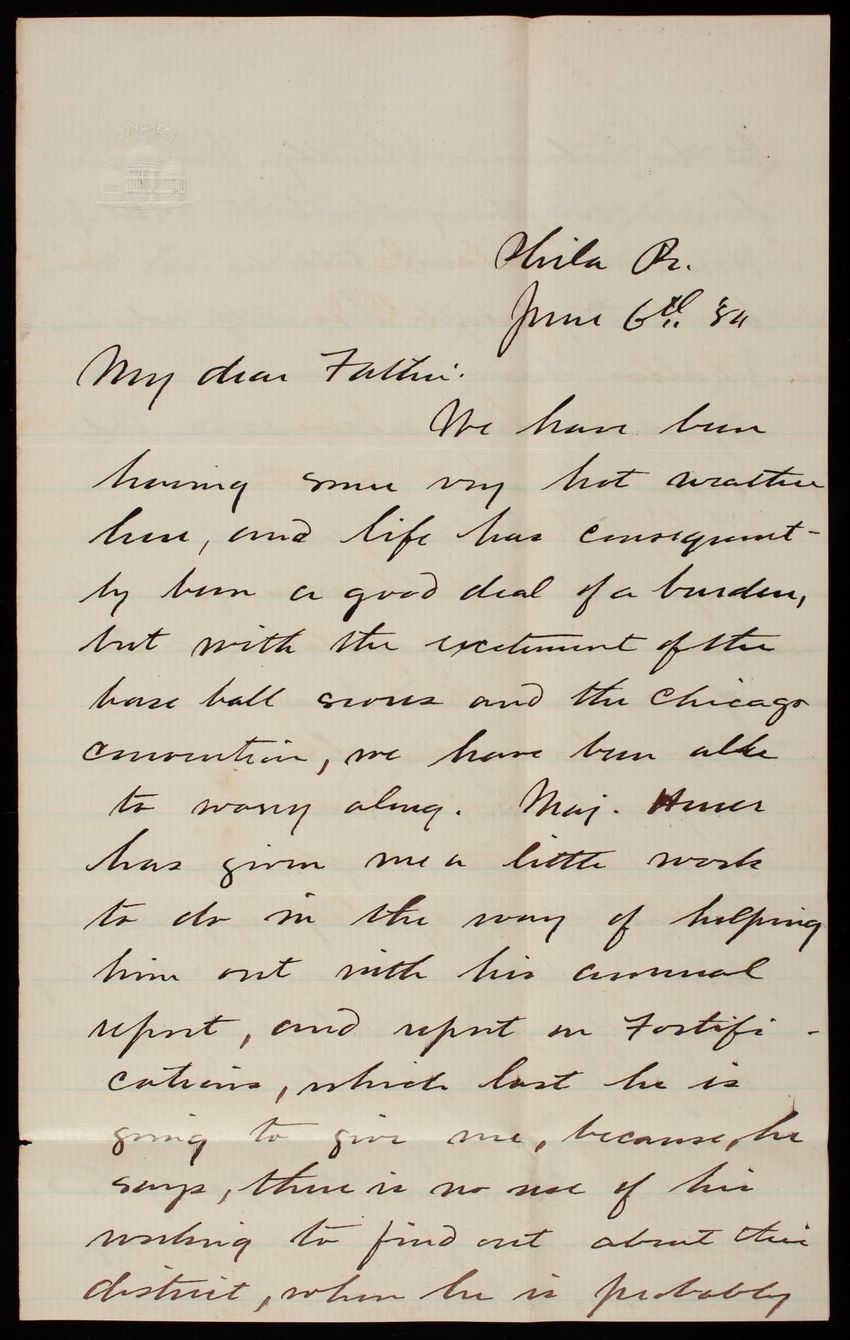 CONGRESS
Phila Pa.
June 6th. '84
My dear Father.
We have been
having some very hot weather
here, and life has consequent-
ly been a good deal of a burden,
but with the excitement of the
base ball scores and the Chicago
convention, we have been able
to worry along. Maj. Heuer
has given me a little work
to do in the way of helping
him out with his annual
report, and report on Fortifi-
cations, which last he is
going to give me, because, he
says, there is no use of his
working to find out about this
district, when he is probably